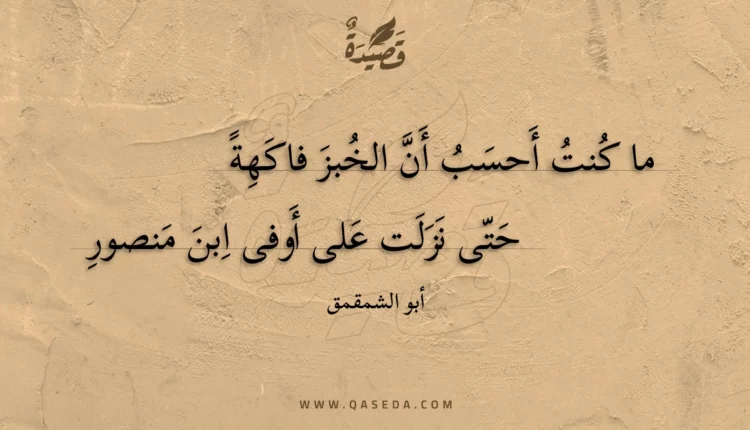 قَصيدَةٌ
ما كُنتُ أَحسَبُ أَنَّ الخُبزَ فاكَهِةً
حَتّى نَزَلَت عَلى أَوفى اِبنَ مَنصورِ
أبو الشمقمق
WWW.QASEDA.COM